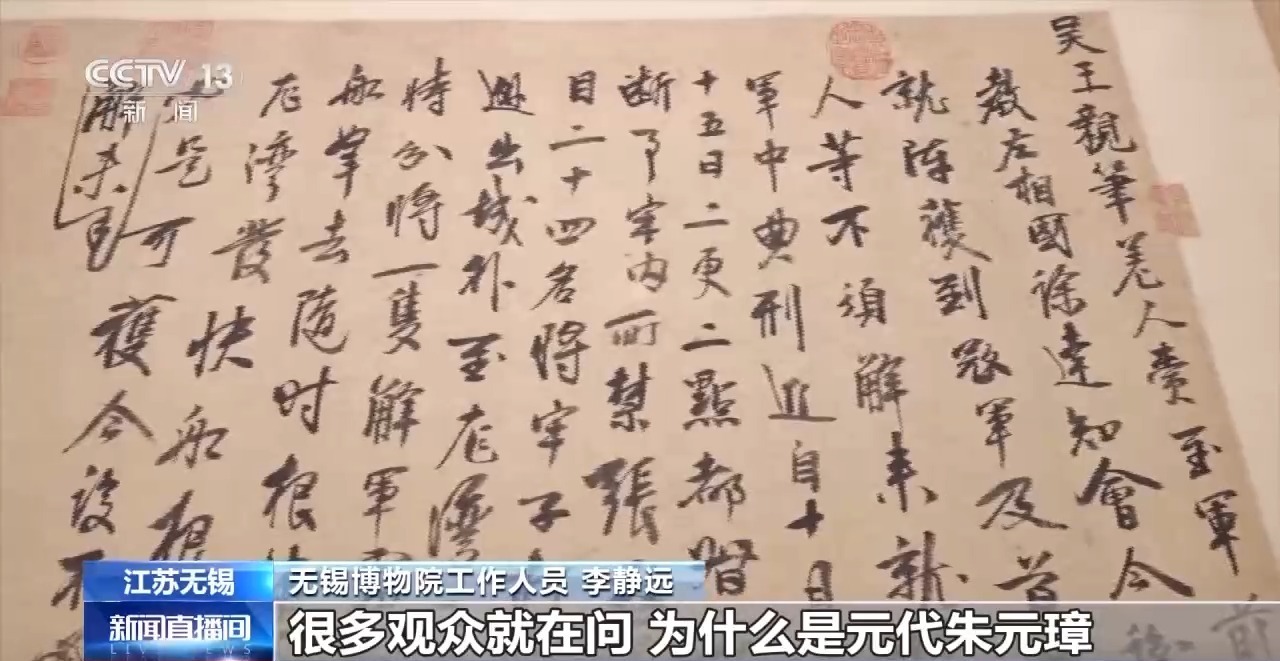 CCTV 13
新闻
吴王親筆差人賫至軍前
教左相國徐達知會今後
就陣獲到寇軍及首
人等不須解来就
軍中典刑進自十月
十五日二更二點都督
斷了牢内所禁張
目二十四名將牢子
出城外至龙灣
分將一隻解軍
船拏去隨时根
龙灣發快船根
是可獲今設不
解来
江苏无锡
无锡博物院工作人员 李静远
新闻直播间
LIVE NEWS
很多观众就在问 为什么是元代朱元璋